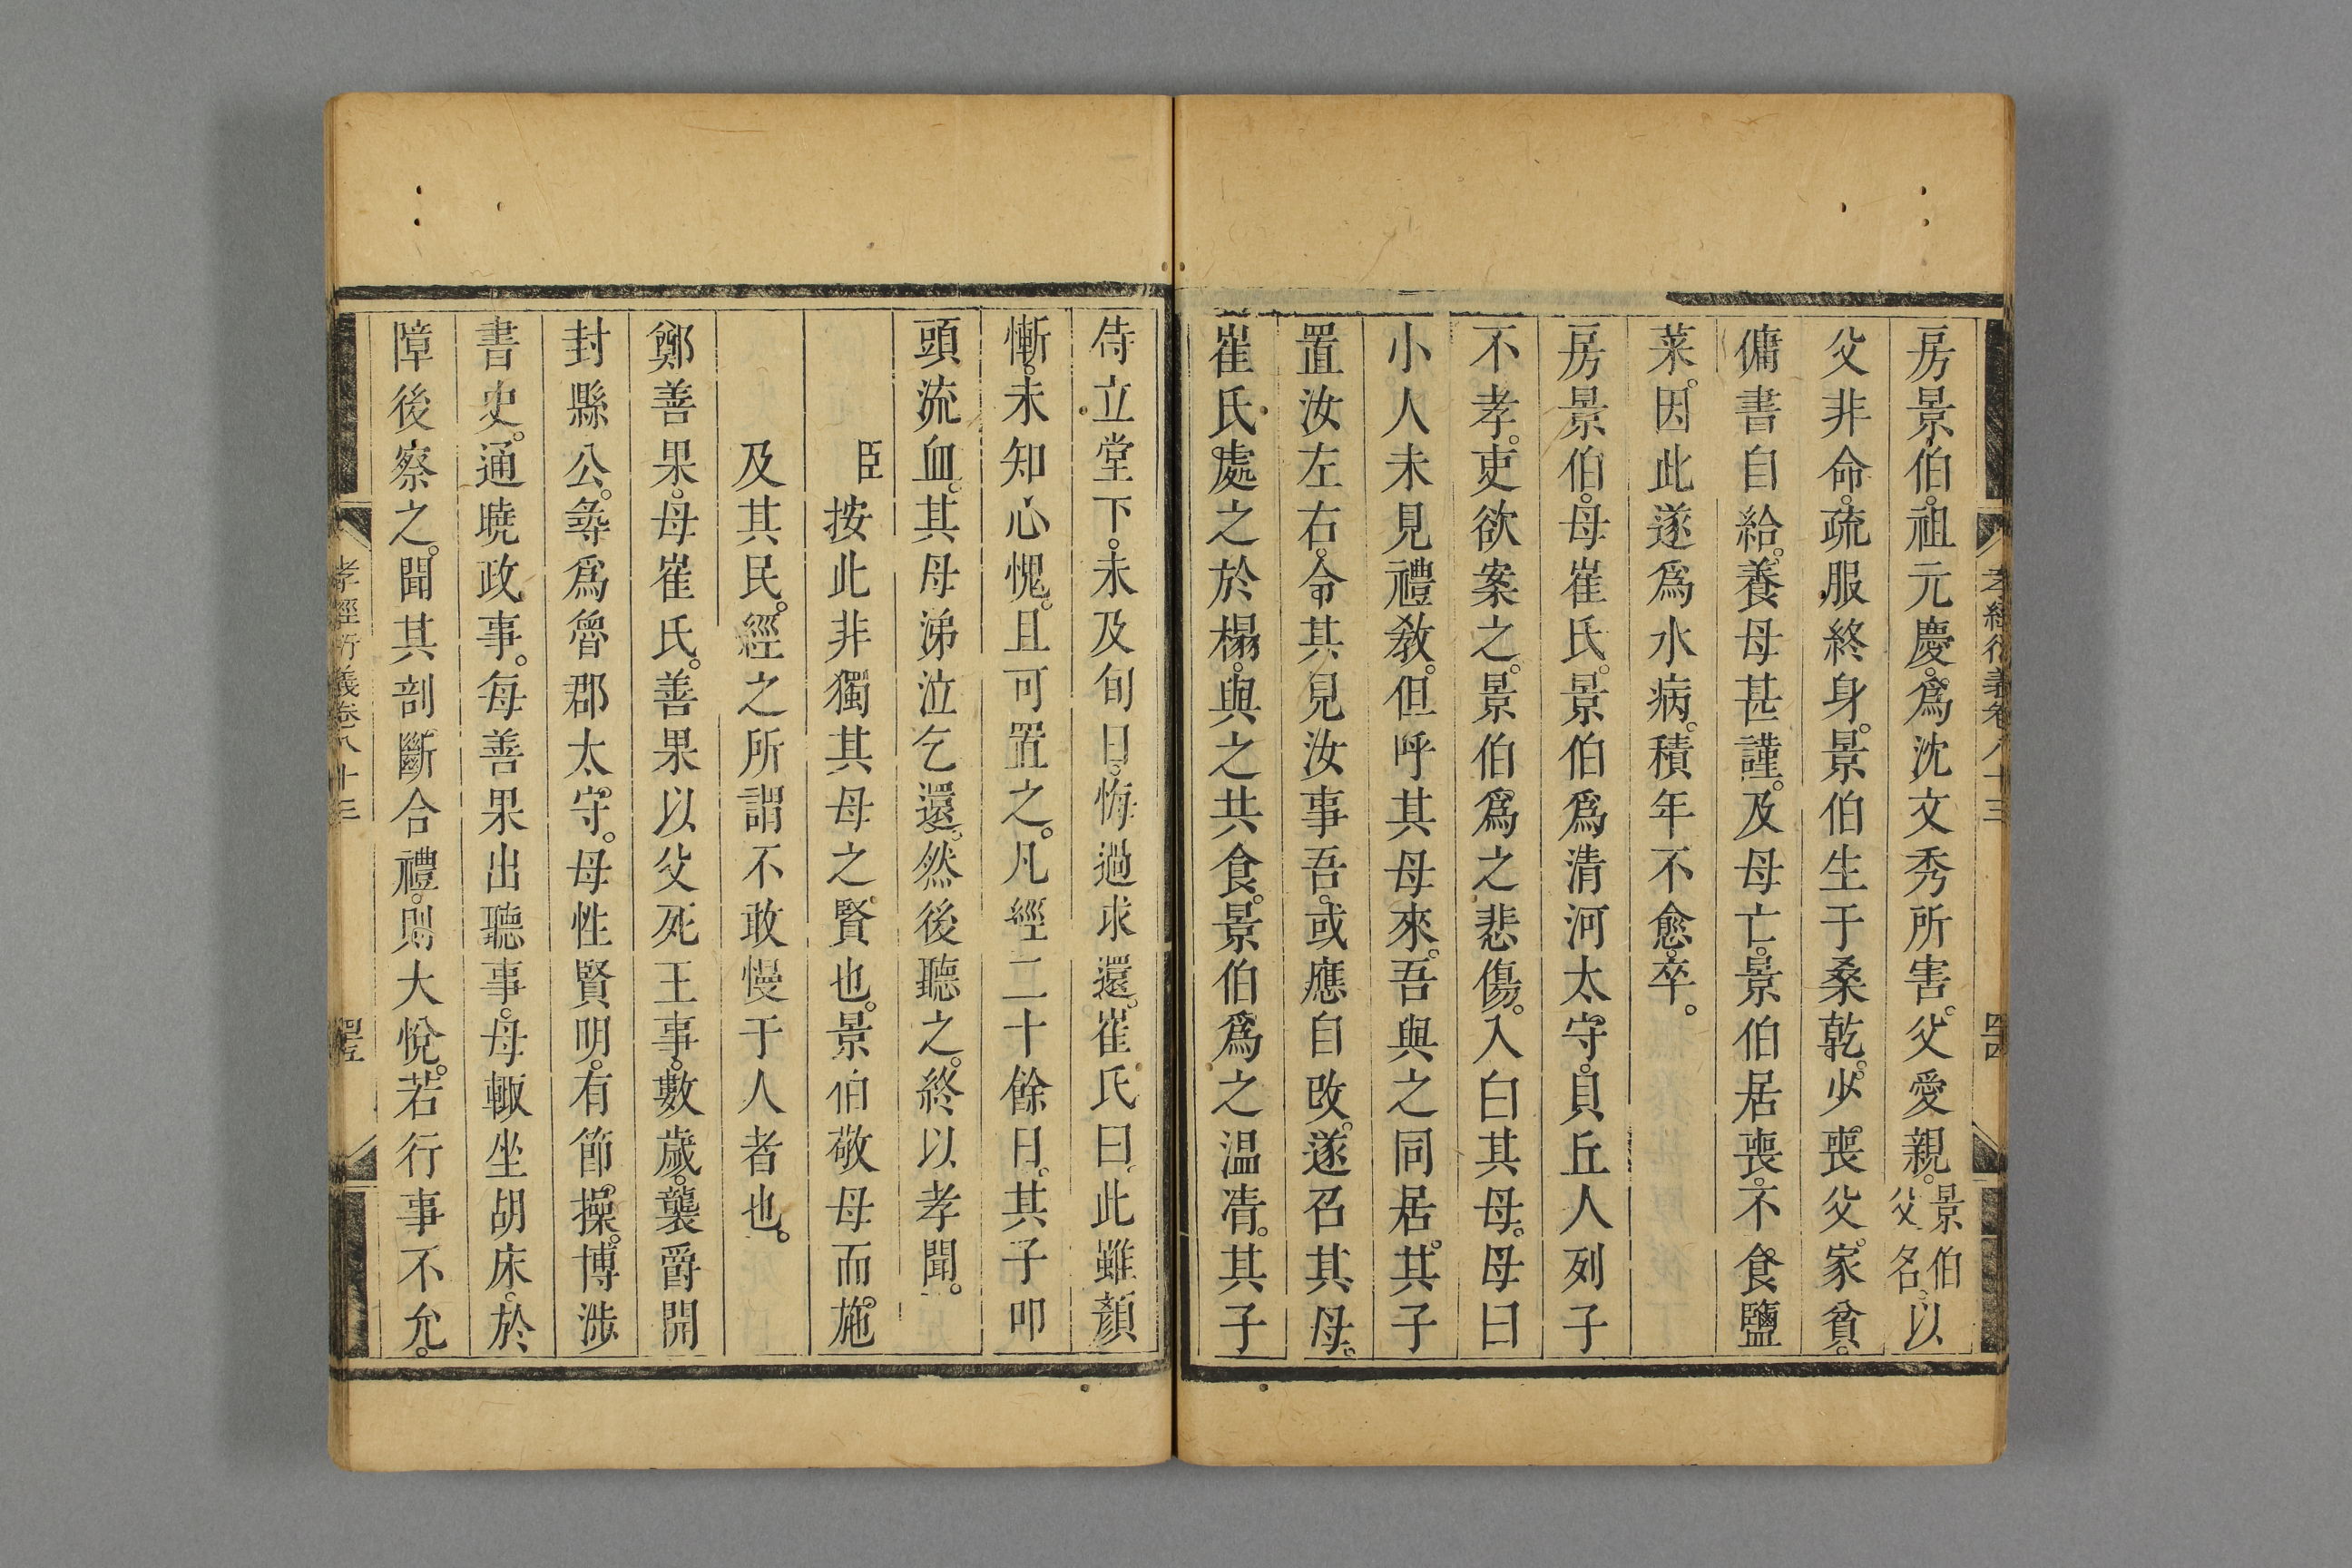 房景伯。祖元慶。爲沈文秀所害。父愛親。景伯父名。以
父非命。疏服終身。景伯生于桑乾。少喪父。家貧。
傭書自給。養母甚謹。及母亡。景伯居喪。不食鹽
菜。因此遂爲水病。積年不愈。卒。
房景伯。母崔氏。景伯爲清河太守。貝丘人列子
不孝。吏欲案之。景伯爲之悲傷。入白其母。母曰
小人未見禮敎。但呼其母來。吾與之同居。其子
置汝左右。令其見汝事吾。或應自改。遂召其母。
崔氏處之於榻。與之共食。景伯爲之温凊。其子
侍立堂下。未及旬日。悔過求還。崔氏曰。此雖顏
慚。未知心愧。且可置之。凡經二十餘日。其子叩
頭流血。其母涕泣乞還。然後聽之。終以孝聞。
臣按此非獨其母之賢也。景伯敬母而施
及其民。經之所謂不敢慢于人者也。
鄭善果。母崔氏。善果以父死王事。數歲。襲爵開
封縣公。尋爲魯郡太守。母性賢明。有節操。博涉
書史。通曉政事。每善果出聽事。母輙坐胡床。於
障後察之。聞其剖斷合禮。則大悅。若行事不允。
孝經衍義卷八十三